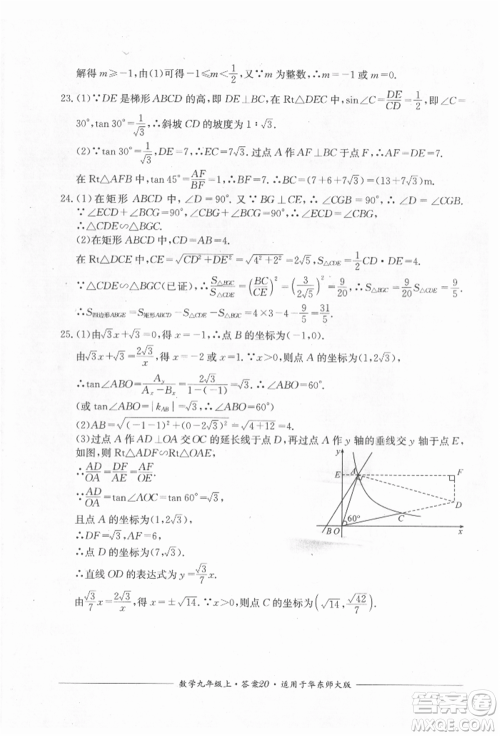 解得 m⩾-1,由(1)可得-1⩽m<1/2,又∵m为整数,∴m=-1,0.
23.(1)∵DE是梯形ABCD的高,即DE⊥BC,在Rt△DEC中,sin∠C=DE/CD=1/2,即∠C=
30°,tan 30°=1/√3,∴斜坡CD的坡度为1∶√3.
(2)∵tan30°=1/√3,DE=7,∴EC=7√3.过点A作AF⊥BC于点F,则AF=DE=7,
∵∠B=45°,tan 45°=AF/BF=1,∴BF=7,∴BC=7+6+7√3=(13+7√3)m.
24.(1)在矩形ABCD中,∠D=90°.又∵BG⊥CE,∴∠CGB=90°,∴∠D=∠CGB.
∵∠ECD+∠BCG=90°,∠BCG+∠CBG=90°,∴∠ECD=∠CBG,
∴△CDE∽△BGC.
(2)在矩形ABCD中,CD=AB=4.
在Rt△DCE中,CE=√(CD²+DE²)=√(4²+2²)=2√5,S△CDE=1/2CD·DE=4.
∵△CDE∽△BGC(已证),∴S△BGC/S△CDE=(BC/CE)²=(3/2√5)²=9/20,∴S△BGC=9/20S△CDE=9/5.
∴S四边形ABGE=S矩形ABCD-S△BGC-S△CDE=4×3-4-9/5=31/5.
25.(1)由√3x+√3=2√3/x,解得x=1或x=-2.∵x>0,∴x=1,∴点A的坐标为(1,2√3).
由√3x+√3=0,得x=-1,∴点B的坐标为(-1,0),
∴tan∠ABO=Ay/(Ax-Bx)=2√3/(1-(-1))=√3.
(或tan∠ABO=|kAB|=√3),∴∠ABO=60°.
(2)AB=√((-1-1)²+(-2√3)²)=√(4+12)=4.
(3)过点A作AD⊥OA交OC的延长线于点D,再过点A作y轴的垂线交y轴于点E,
如图,则Rt△ADF∽Rt△OAE,
∴AD/OA=DF/AE=AF/OE.
∵AD/OA=tan∠AOC=tan60°=√3,
且点A的坐标为(1,2√3),
∴DF=√3,AF=6,
∴点D的坐标为(7,√3).
∴直线OD的表达式为y=√3/7x.
由√3/7x=2√3/x,得x=±√14.∵x>0,∴x=√14.则点C的坐标为(√14,√42/7).
y
E
A
F
D
C
60°
B
O
x
数学九年级上·答案20·适用于华东师大版